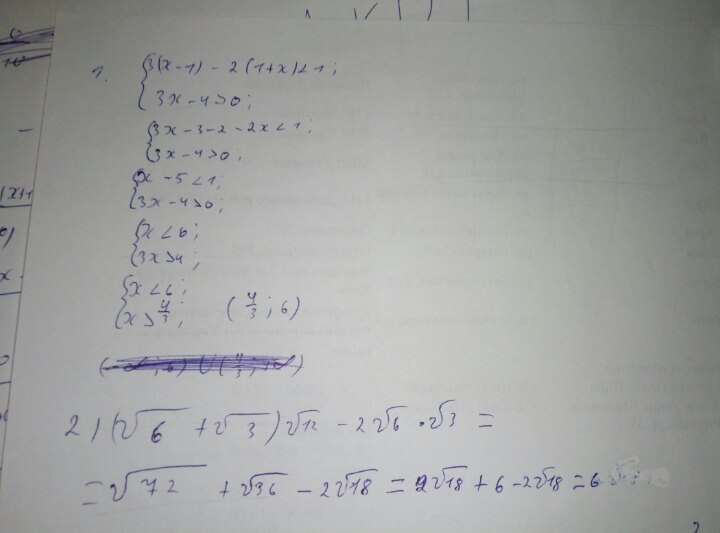 1. {3(x-1) - 2(1+x) < 1;
{3x-4>0;
{3x-3-2-2x<1;
{3x-4>0;
{x-5<1;
{3x-4>0;
{x<6;
{3x>4;
{x<6;
{x>4/3; (4/3; 6)
2) (√6 + √3)√12 - 2√6·√3 =
= √72 + √36 - 2√18 = 2√18 + 6 - 2√18 = 6